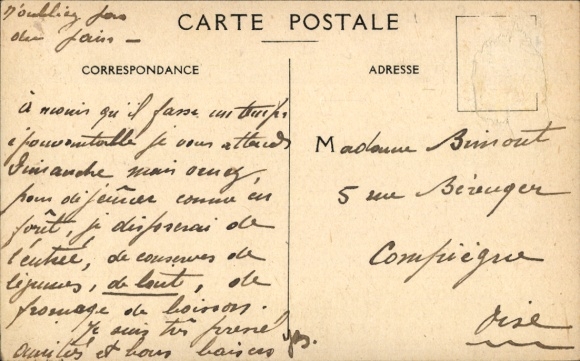 n'oubliez pas
du pain —
CARTE POSTALE
CORRESPONDANCE
ADRESSE
à moins qu'il fasse un temps
épouvantable je vous attends
Dimanche mais venez
pour déjeûner comme en
forêt, je disposerai de
l'entrée, de conserves de
légumes, de tout, de
fromage de boisson.
Je suis très pressé
amitiés et bons baisers
Madame
5 rue Bérenger
Compiègne
Oise